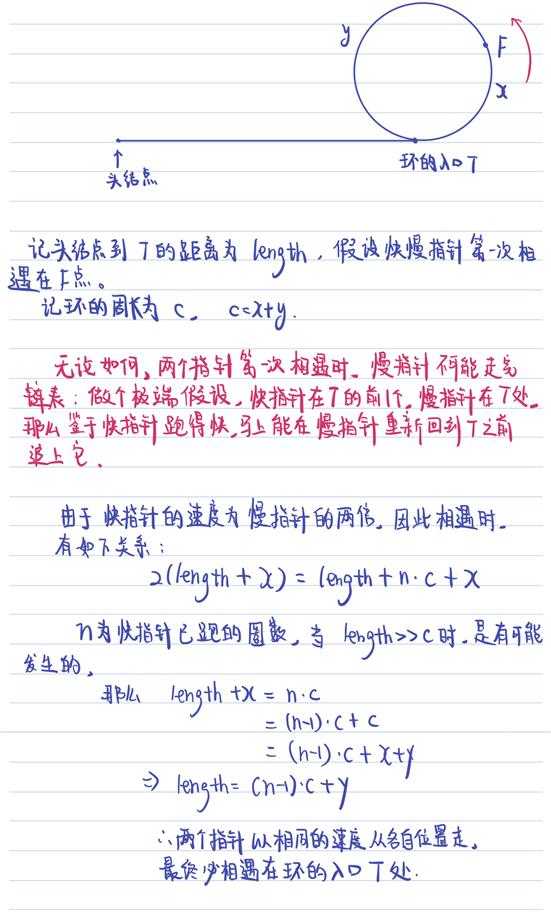 y
F
x
↑
头结点
环的入口 T
记头结点到 T 的距离为 length，假设快慢指针第一次相
遇在 F点。
记环的周长为 c，c=x+y.
无论如何，两个指针第一次相遇时，慢指针不可能走完
链表：做个极端假设，快指针在T的前1个，慢指针在T处。
那么鉴于快指针跑得快，马上能在慢指针重新回到T之前
追上它.
由于快指针的速度为慢指针的两倍，因此相遇时，
有如下关系：
2(length + x) = length + n·c + x
n为快指针已跑的圈数，当 length>>c 时，是有可能
发生的，
那么 length + x = n·c
= (n-1)·c + c
= (n-1)·c + x+y
⇒ length = (n-1)·c + y
∴两个指针以相同的速度从各自位置走，
最终必相遇在环的入口 T处.